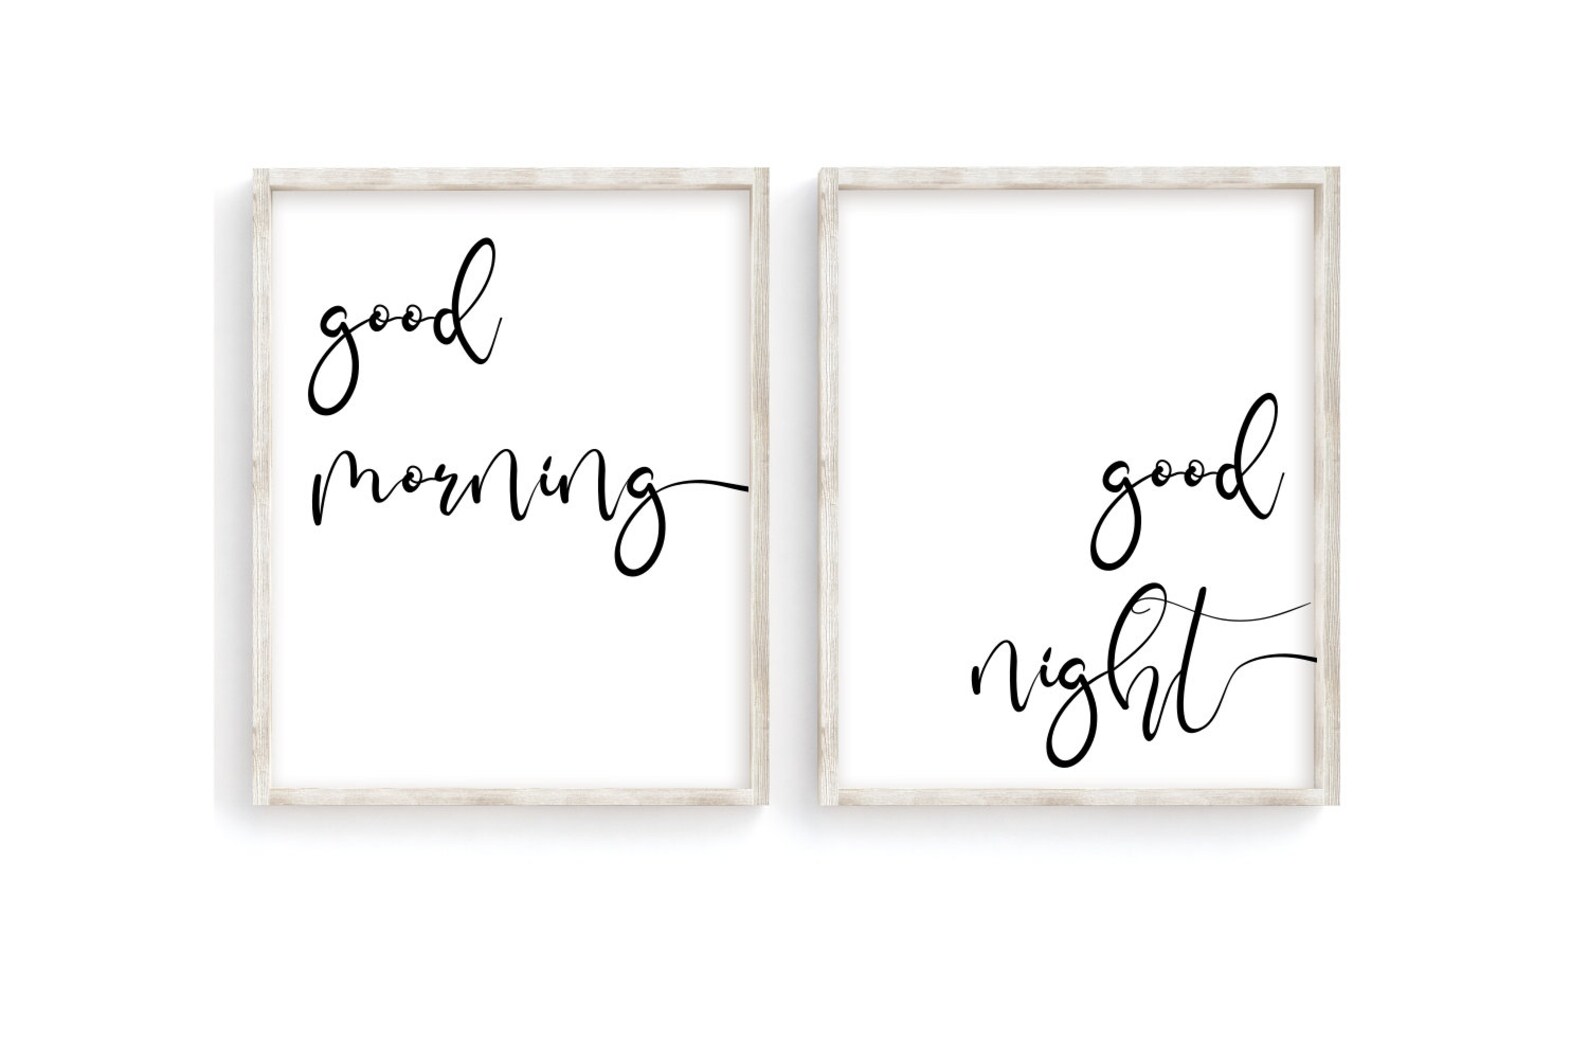 good
morning
good
night